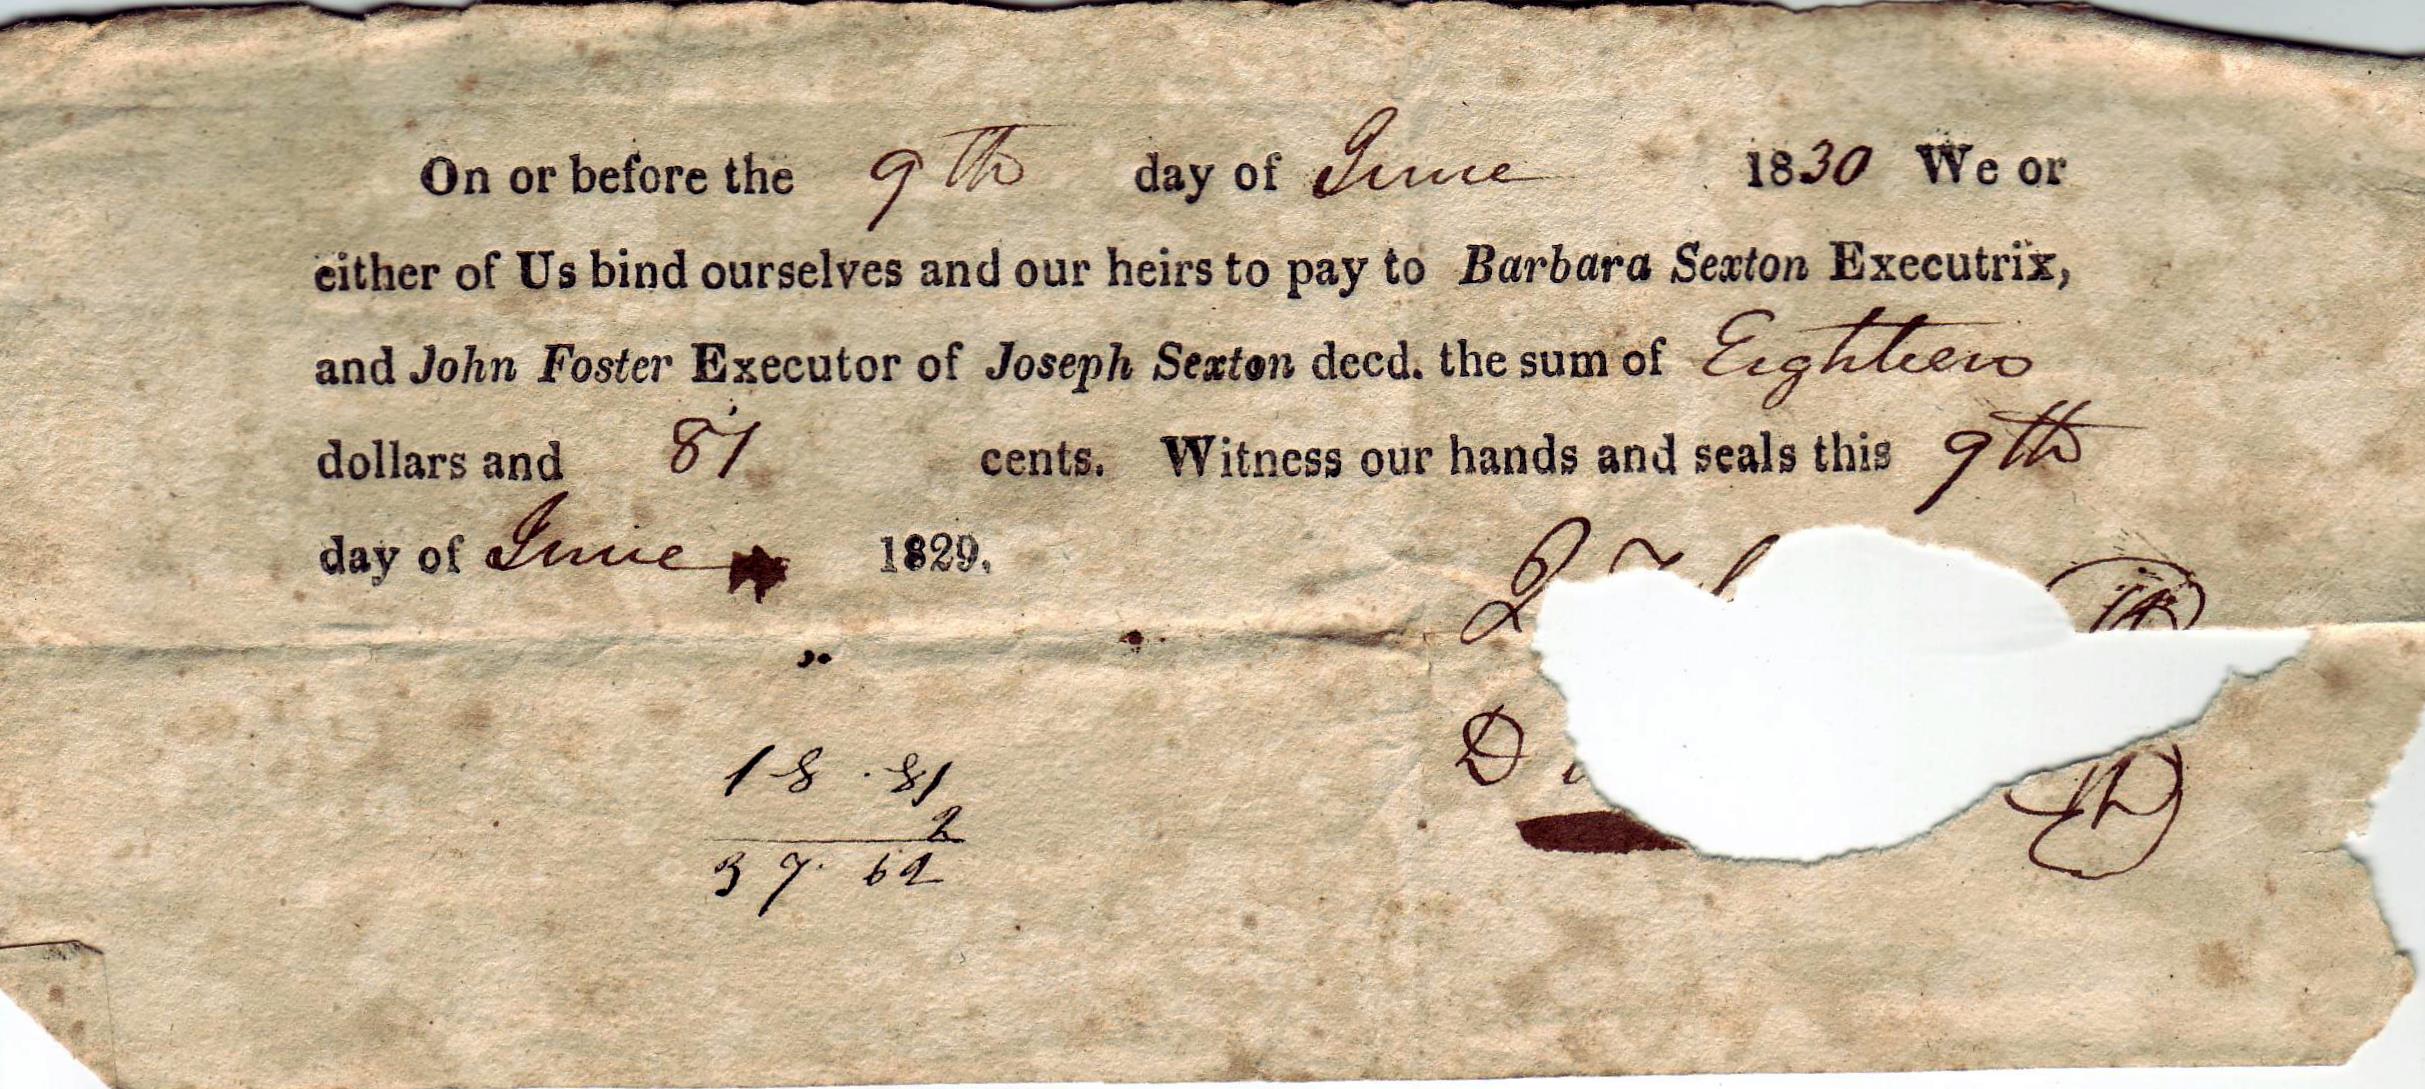 On or before the 9th day of June 1830 We or
either of Us bind ourselves and our heirs to pay to Barbara Sexton Executrix,
and John Foster Executor of Joseph Sexton decd. the sum of Eighteen
dollars and 81 cents. Witness our hands and seals this 9th
day of June 1829.
D
18.81
2
37.62